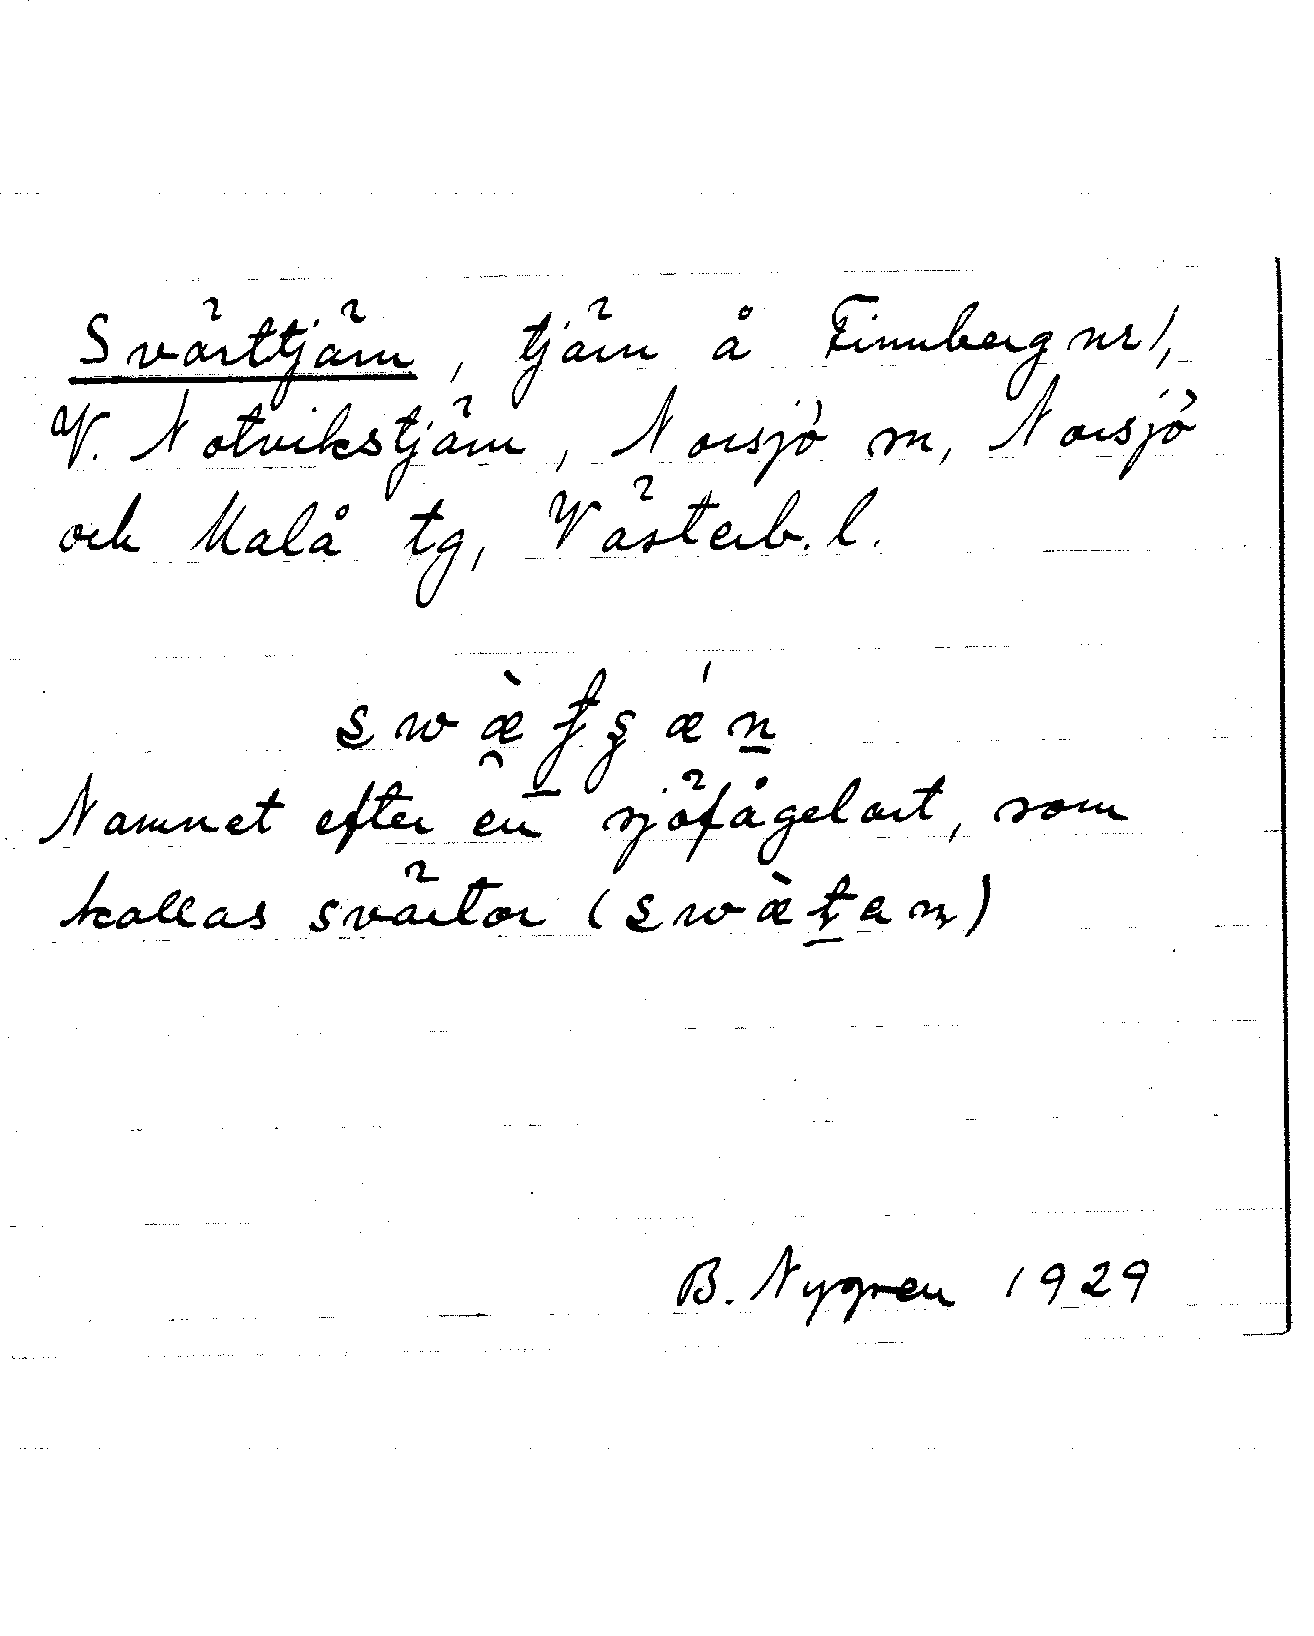 Svärttjärn, tjärn å Finnberg nr 1,
V. Notvikstjärn, Norsjö sn, Norsjö
och Malå tg, Västerb. l.
Namnet efter en sjöfågelart, som
kallas svärtor
B. Nygren 1929